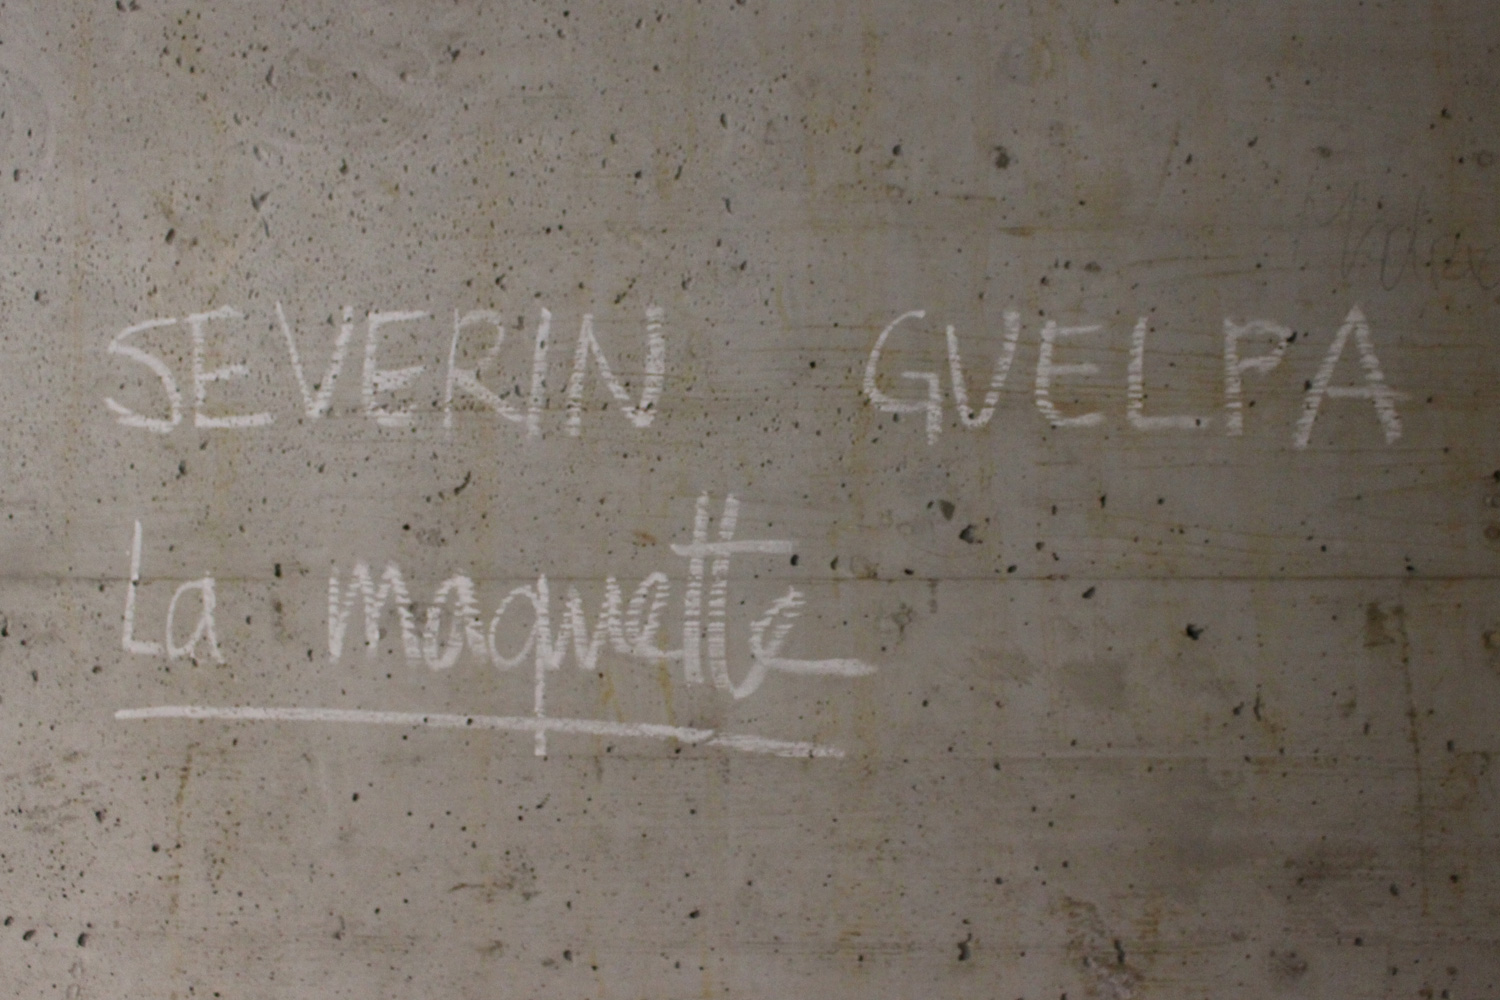 SEVERIN GUELPA
La maquette